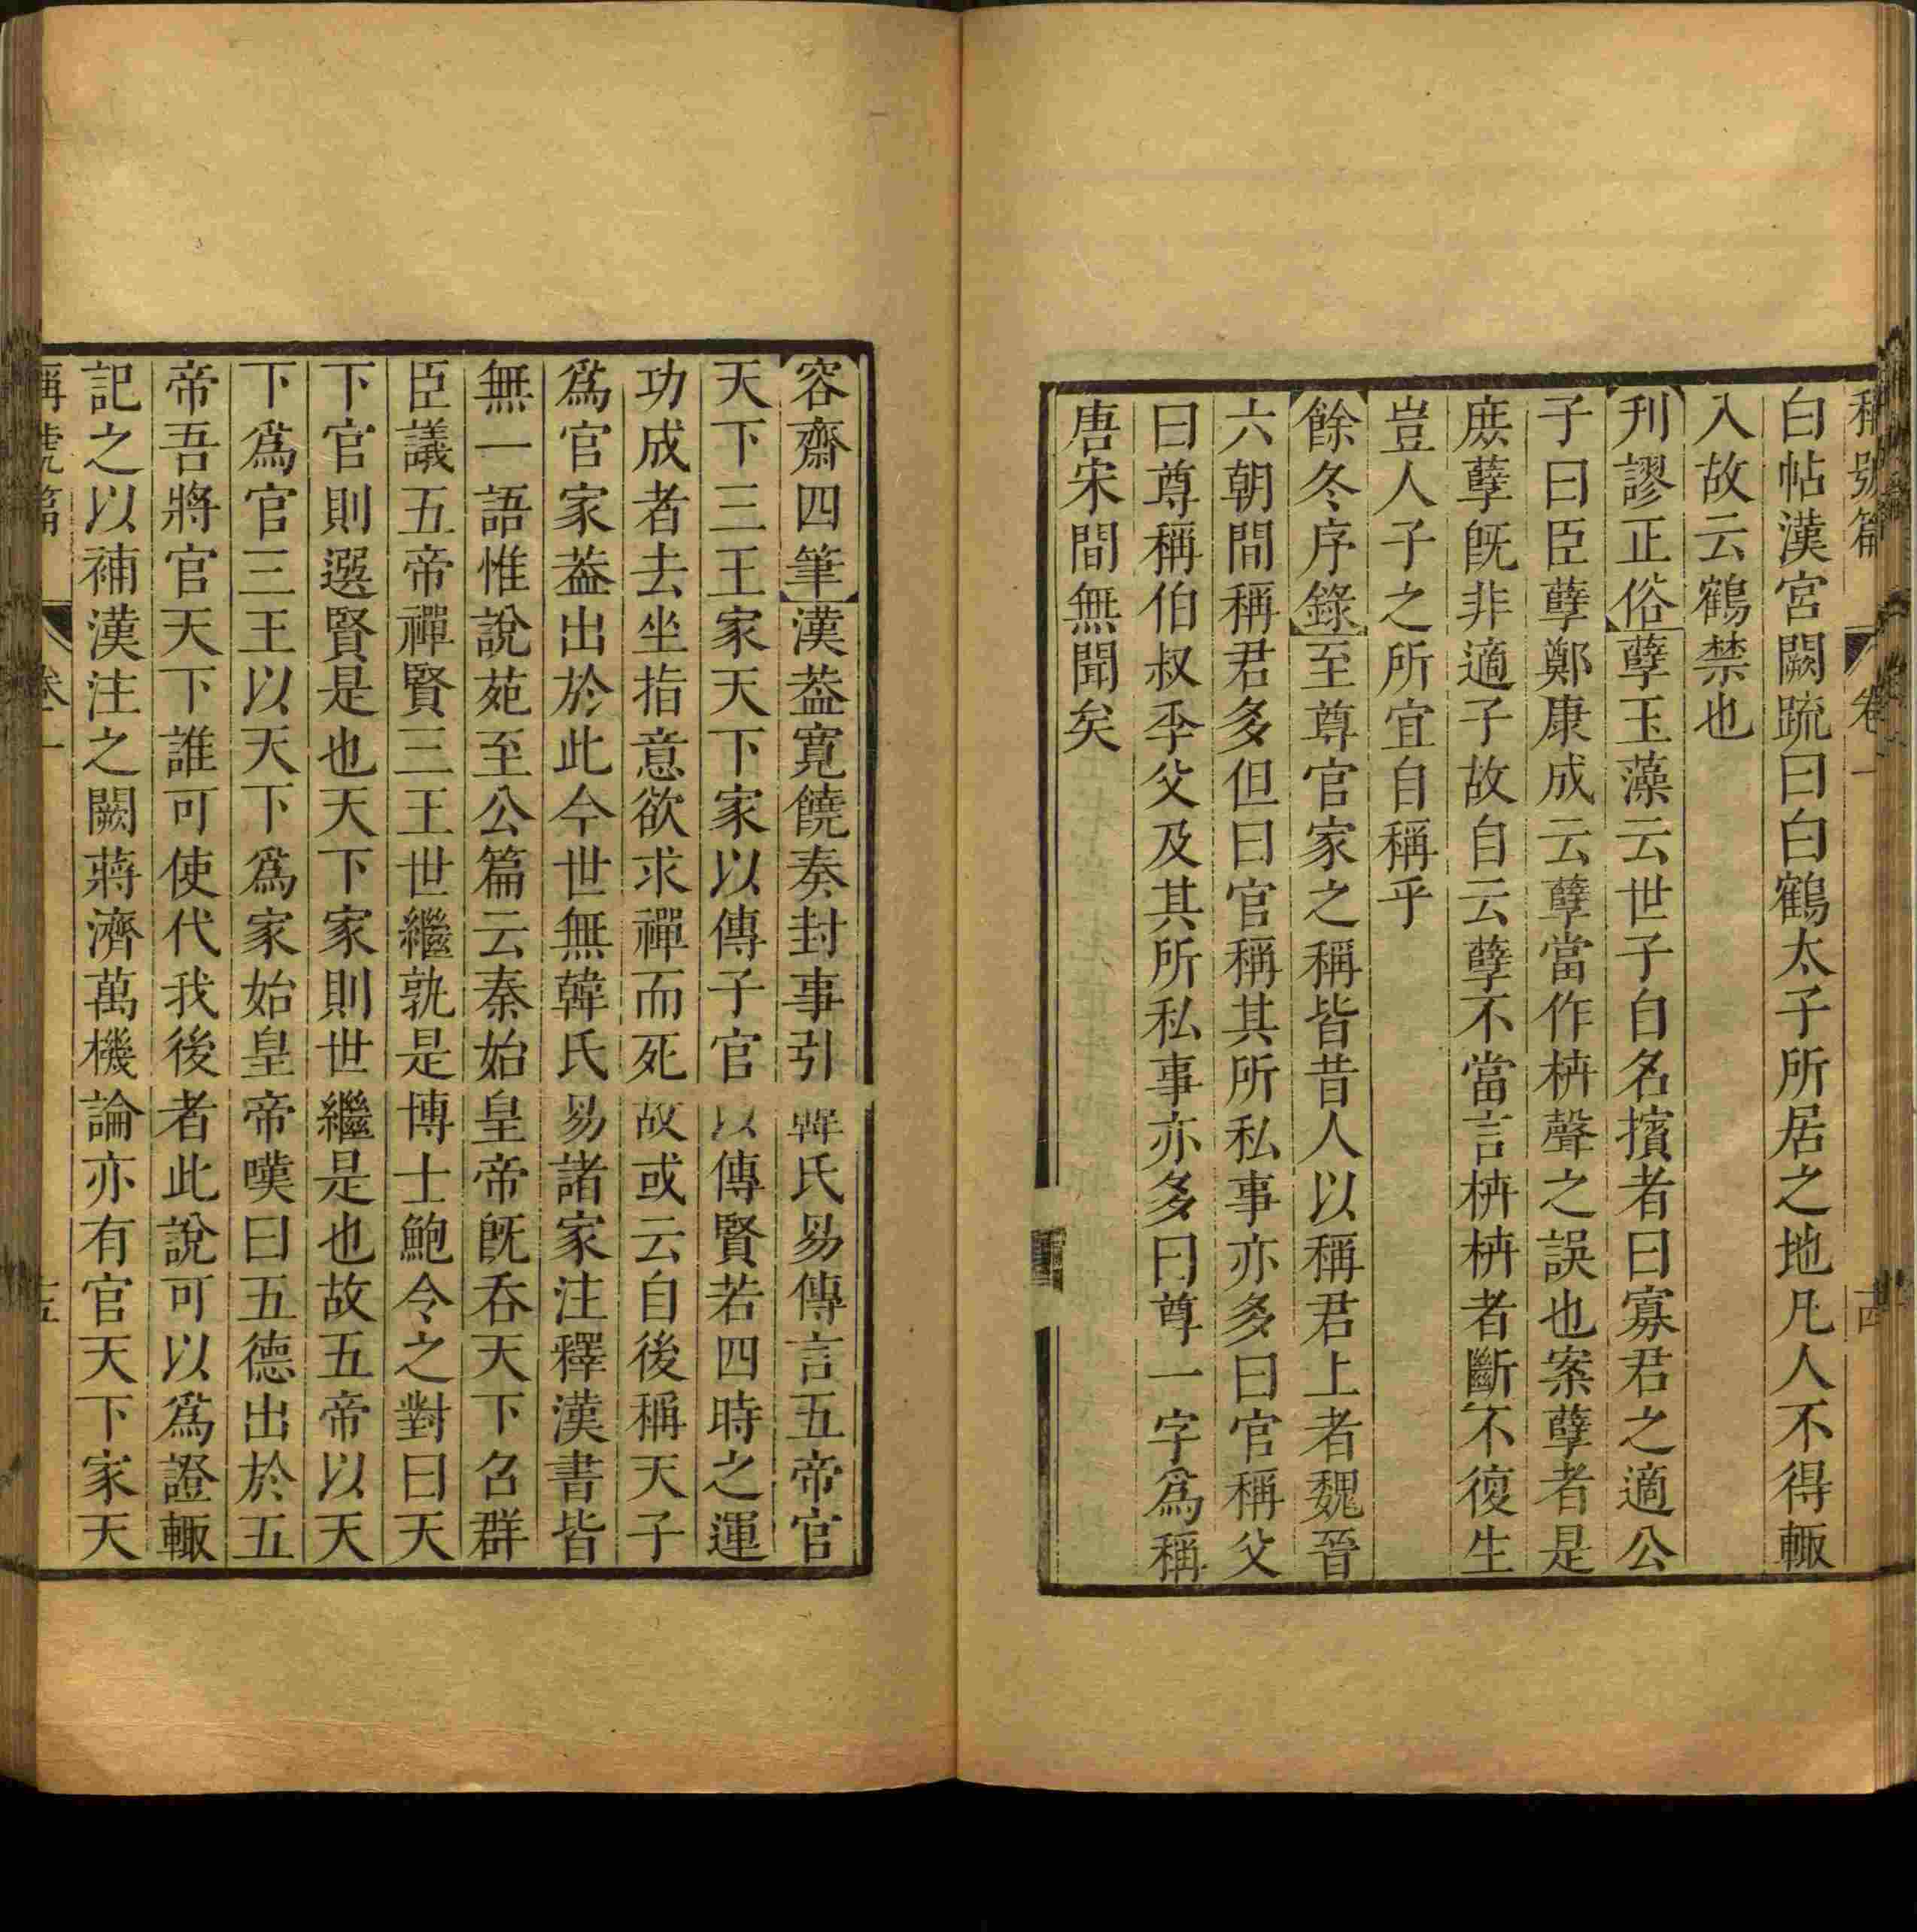 稱號篇 卷一 十四
白帖漢宮闕䟽曰白鶴太子所居之地凡人不得輙
入故云鶴禁也
刋謬正俗孽玉藻云世子自名擯者曰寡君之適公
子曰臣孽鄭康成云孽當作枿聲之誤也案孽者是
庶孽旣非適子故自云孽不當言枿枿者斷不復生
豈人子之所宜自稱乎
餘冬序錄至尊官家之稱皆昔人以稱君上者魏晉
六朝間稱君多但曰官稱其所私事亦多曰官稱父
曰尊稱伯叔季父及其所私事亦多曰尊一字爲稱
唐宋間無聞矣
容齋四筆漢葢寛饒奏封事引韓氏易傳言五帝官
天下三王家天下家以傳子官以傳賢若四時之運
功成者去坐指意欲求禪而死故或云自後稱天子
爲官家葢出於此今世無韓氏易諸家注釋漢書皆
無一語惟說苑至公篇云秦始皇帝旣吞天下召群
臣議五帝禪賢三王世繼孰是博士鮑令之對曰天
下官則選賢是也天下家則世繼是也故五帝以天
下爲官三王以天下爲家始皇帝嘆曰五德出於五
帝吾將官天下誰可使代我後者此說可以爲證輙
記之以補漢注之闕蔣濟萬機論亦有官天下家天
稱號篇 卷一